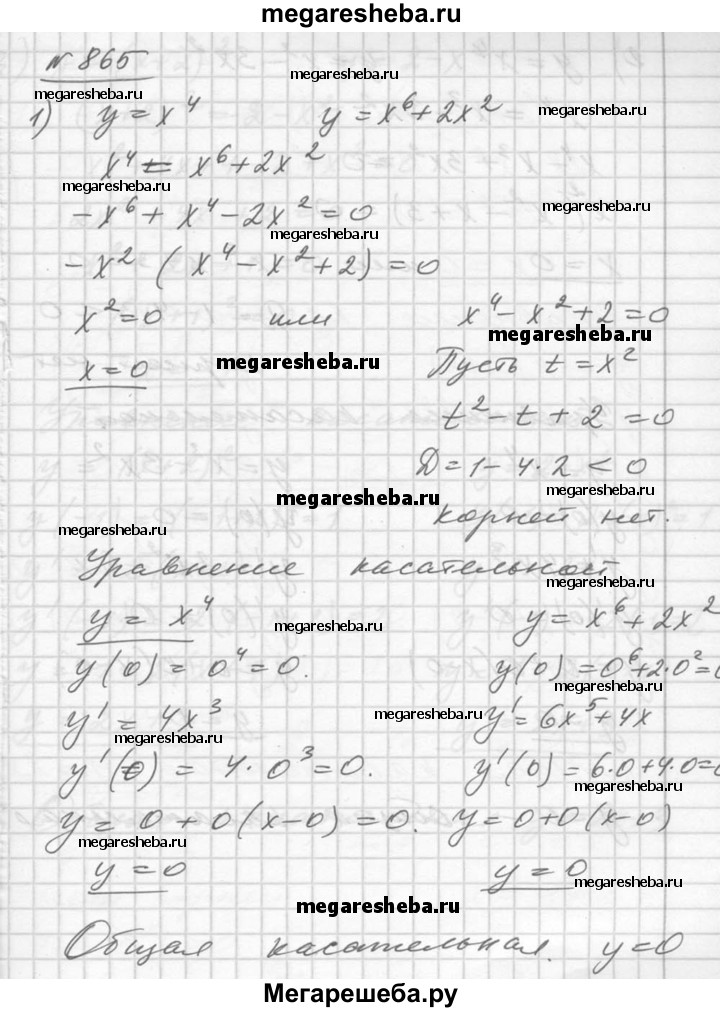 megaresheba.ru
№ 865
megaresheba.ru
megaresheba.ru
1) y = x⁴ y = x⁶ + 2x²
megaresheba.ru
x⁴ = x⁶ + 2x²
megaresheba.ru
- x⁶ + x⁴ - 2x² = 0
megaresheba.ru
megaresheba.ru
- x² ( x⁴ - x² + 2) = 0
x² = 0 или x⁴ - x² + 2 = 0
megaresheba.ru
x = 0
megaresheba.ru
Пусть t = x²
t² - t + 2 = 0
Д = 1 - 4 · 2 < 0
megaresheba.ru
megaresheba.ru
корней нет.
megaresheba.ru
Уравнение касательной
megaresheba.ru
y = x⁴ y = x⁶ + 2x²
megaresheba.ru
y(0) = 0⁴ = 0. y(0) = 0⁶ + 2·0² = 0
megaresheba.ru
y' = 4x³ y' = 6x⁵ + 4x
megaresheba.ru
megaresheba.ru
y'(0) = 4 · 0³ = 0. y'(0) = 6·0 + 4·0 = 0
megaresheba.ru
y = 0 + 0 (x - 0) = 0. y = 0 + 0 (x - 0)
megaresheba.ru
y = 0 y = 0
megaresheba.ru
megaresheba.ru
Общая касательная. y = 0
Мегарешеба.ру